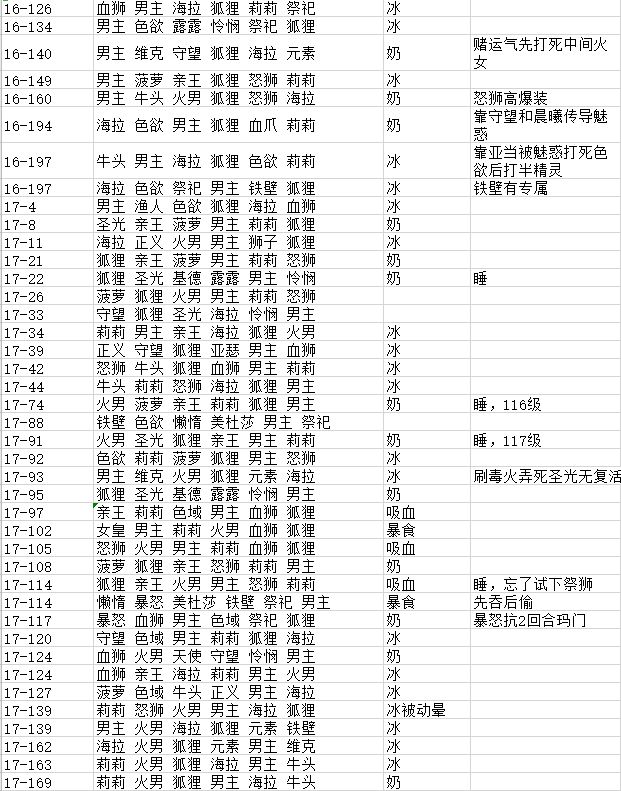 16-126 血狮 男主 海拉 狐狸 莉莉 祭祀 冰
16-134 男主 色欲 露露 怜悯 祭祀 狐狸 冰
16-140 男主 维克 守望 狐狸 海拉 元素 奶 赌运气先打死中间火
女
16-149 男主 菠萝 亲王 狐狸 怒狮 莉莉 冰
16-160 男主 牛头 火男 狐狸 怒狮 海拉 奶 怒狮高爆装
16-194 海拉 色欲 男主 狐狸 血爪 莉莉 奶 靠守望和晨曦传导魅
惑
16-197 牛头 男主 海拉 狐狸 色欲 莉莉 冰 靠亚当被魅惑打死色
欲后打半精灵
16-197 海拉 色欲 祭祀 男主 铁壁 狐狸 冰 铁壁有专属
17-4 男主 渔人 色欲 狐狸 海拉 血狮 冰
17-8 圣光 亲王 菠萝 男主 莉莉 狐狸 奶
17-11 海拉 正义 火男 男主 狮子 狐狸 冰
17-21 狐狸 亲王 菠萝 男主 莉莉 怒狮 奶
17-22 狐狸 圣光 基德 露露 男主 怜悯 奶 睡
17-26 菠萝 狐狸 火男 男主 莉莉 怒狮
17-33 守望 狐狸 圣光 海拉 怜悯 男主
17-34 莉莉 男主 亲王 海拉 狐狸 火男 冰
17-39 正义 守望 狐狸 亚瑟 男主 血狮 冰
17-42 怒狮 牛头 狐狸 血狮 男主 莉莉 冰
17-44 牛头 莉莉 怒狮 海拉 狐狸 男主 冰
17-74 火男 菠萝 亲王 莉莉 狐狸 男主 奶 睡，116级
17-88 铁壁 色欲 懒惰 美杜莎 男主 祭祀
17-91 火男 圣光 狐狸 亲王 男主 莉莉 奶 睡，117级
17-92 色欲 莉莉 菠萝 狐狸 男主 怒狮 冰
17-93 男主 维克 火男 狐狸 元素 海拉 冰 刷毒火弄死圣光无复活
17-95 狐狸 圣光 基德 露露 怜悯 男主 奶
17-97 亲王 莉莉 色域 男主 血狮 狐狸 吸血
17-102 女皇 男主 莉莉 火男 血狮 狐狸 暴食
17-105 怒狮 火男 男主 莉莉 血狮 狐狸 吸血
17-108 菠萝 狐狸 亲王 怒狮 莉莉 男主 奶
17-114 狐狸 亲王 火男 男主 怒狮 莉莉 吸血 睡，忘了试下祭狮
17-114 懒惰 暴怒 美杜莎 铁壁 祭祀 男主 暴食 先吞后偷
17-117 暴怒 血狮 男主 色域 祭祀 狐狸 奶 暴怒抗2回合玛门
17-120 守望 色域 男主 莉莉 狐狸 海拉 冰
17-124 血狮 火男 天使 守望 怜悯 男主 奶
17-124 血狮 亲王 海拉 莉莉 男主 火男 冰
17-127 菠萝 色域 牛头 正义 男主 海拉 冰
17-139 莉莉 怒狮 火男 男主 海拉 狐狸 冰被动晕
17-139 男主 火男 海拉 狐狸 元素 铁壁 冰
17-162 海拉 火男 狐狸 元素 男主 维克 冰
17-163 莉莉 火男 狐狸 海拉 男主 牛头 冰
17-169 莉莉 火男 狐狸 男主 海拉 牛头 奶